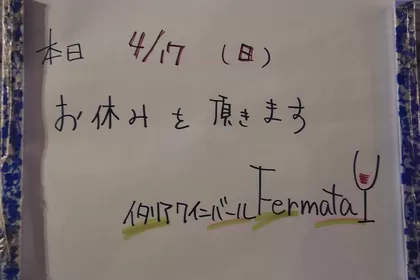 本日 4/17 (日)
お休みを頂きます
イタリアワインバール Fermata